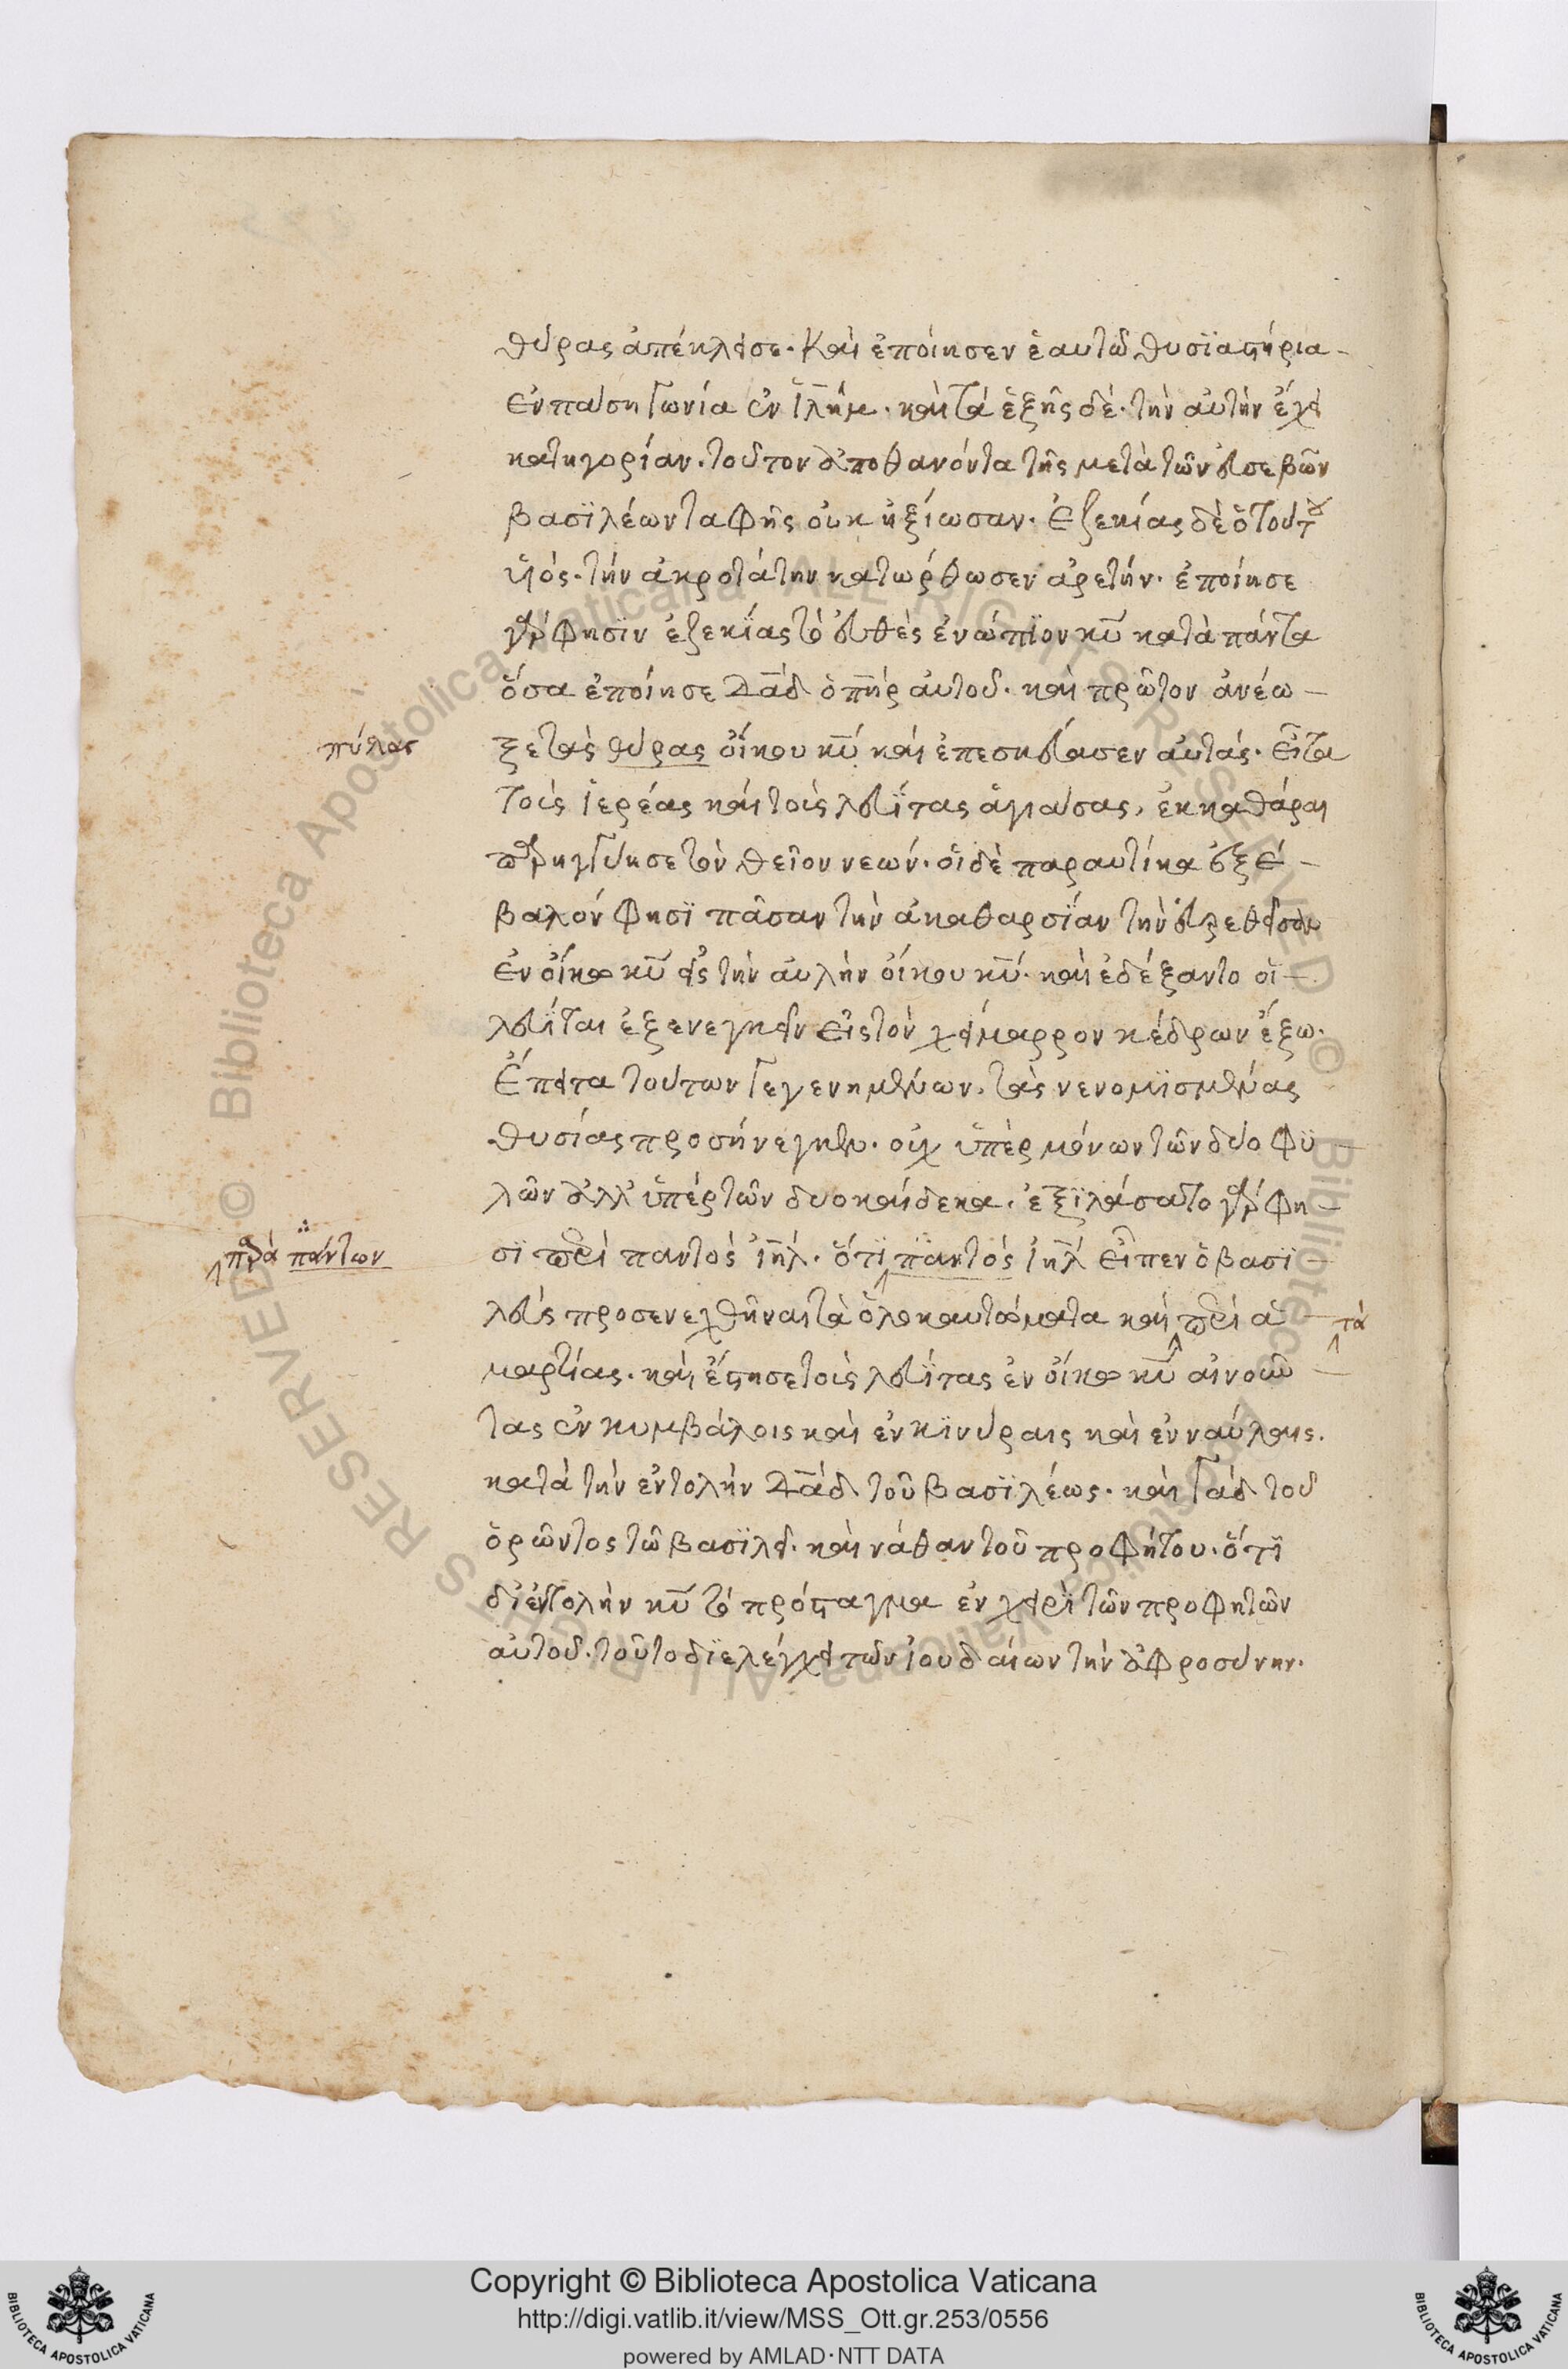 θύρας ἀπέκλεισε. Καὶ ἐποίησεν ἑαυτῶ θυσϊαστήρια
ἐν πάση γωνία ἐν ἰλῆμ. καὶ τὰ ἑξῆς δέ. τὴν αὐτὴν ἔχει
κατηγορίαν. τοῦτον ἀποθανόντα τῆς μετὰ τῶν εὐσεβῶν
βασϊλέων ταφῆς οὐκ ἠξίωσαν. Ἐζεκίας δὲ ὁ τούτου
υἱός. τὴν ἀκροτάτην κατώρθωσεν ἀρετήν. ἐποίησε
γάρ φησϊν ἐζεκΐας τὸ εὐθὲς ἐνώπϊον κυ κατὰ πάντα
ὅσα ἐποίησε Δαδ ὁ πηρ αὐτοῦ. καὶ πρῶτον ἀνέω–
πύλας
ξε τὰς θύρας οἴκου κυ καὶ ἐπεσκεύασεν αὐτάς. εἶτα
τοὺς ἱερέας καὶ τοὺς λευΐτας ἁγιάσας, ἐκκαθάραι
παρηγγύησε τὸν θεῖον νεών. οἱ δὲ παραυτίκα ἐξέ–
βαλόν φησϊ πᾶσαν τὴν ἀκαθαρσΐαν τὴν εὑρεθεῖσαν
ἐν οἴκω κυ εἰς τὴν αὐλὴν οἴκου κυ. καὶ ἐδέξαντο οἱ–
λευΐται ἐξενεγκεῖν εἰς τὸν χείμαρρον κέδρων ἔξω.
Ἔπειτα τούτων γεγενημένων. τὰς νενομϊσμένας
θυσίας προσήνεγκεν. οὐχ ὑπὲρ μόνων τῶν δύο φϋ–
λῶν ἀλλ' ὑπὲρ τῶν δυοκαίδεκα. ἐξϊλάσατο γάρ φη–
παρὰ πάντων
σϊ περὶ παντὸς ἰηλ. ὅτϊ παντὸς ἰηλ εἶπεν ὁ βασϊ–
λεὺς προσενεχθῆναι τὰ ὁλοκαυτώματα καὶ περὶ ἁ–
τὰ
μαρτίας. καὶ ἔστησε τοὺς λευΐτας ἐν οἴκω κυ αἰνοῦν–
τας ἐν κυμβάλοις καὶ ἐν κϊνύραις καὶ ἐν ναύλαις.
κατὰ τὴν ἐντολὴν Δαδ τοῦ βασϊλέως. καὶ Γὰδ τοῦ
ὁρῶντος τῶ βασϊλεῖ. καὶ νάθαν τοῦ προφήτου. ὅτϊ
δι' ἐντολὴν κυ τὸ πρόσταγμα ἐν χειρὶ τῶν προφητῶν
αὐτοῦ. τοῦτο δϊελέγχει τῶν ἰουδαίων τὴν ἀφροσύνην.
Copyright © Biblioteca Apostolica Vaticana
http://digi.vatlib.it/view/MSS_Ott.gr.253/0556
powered by AMLAD·NTT DATA